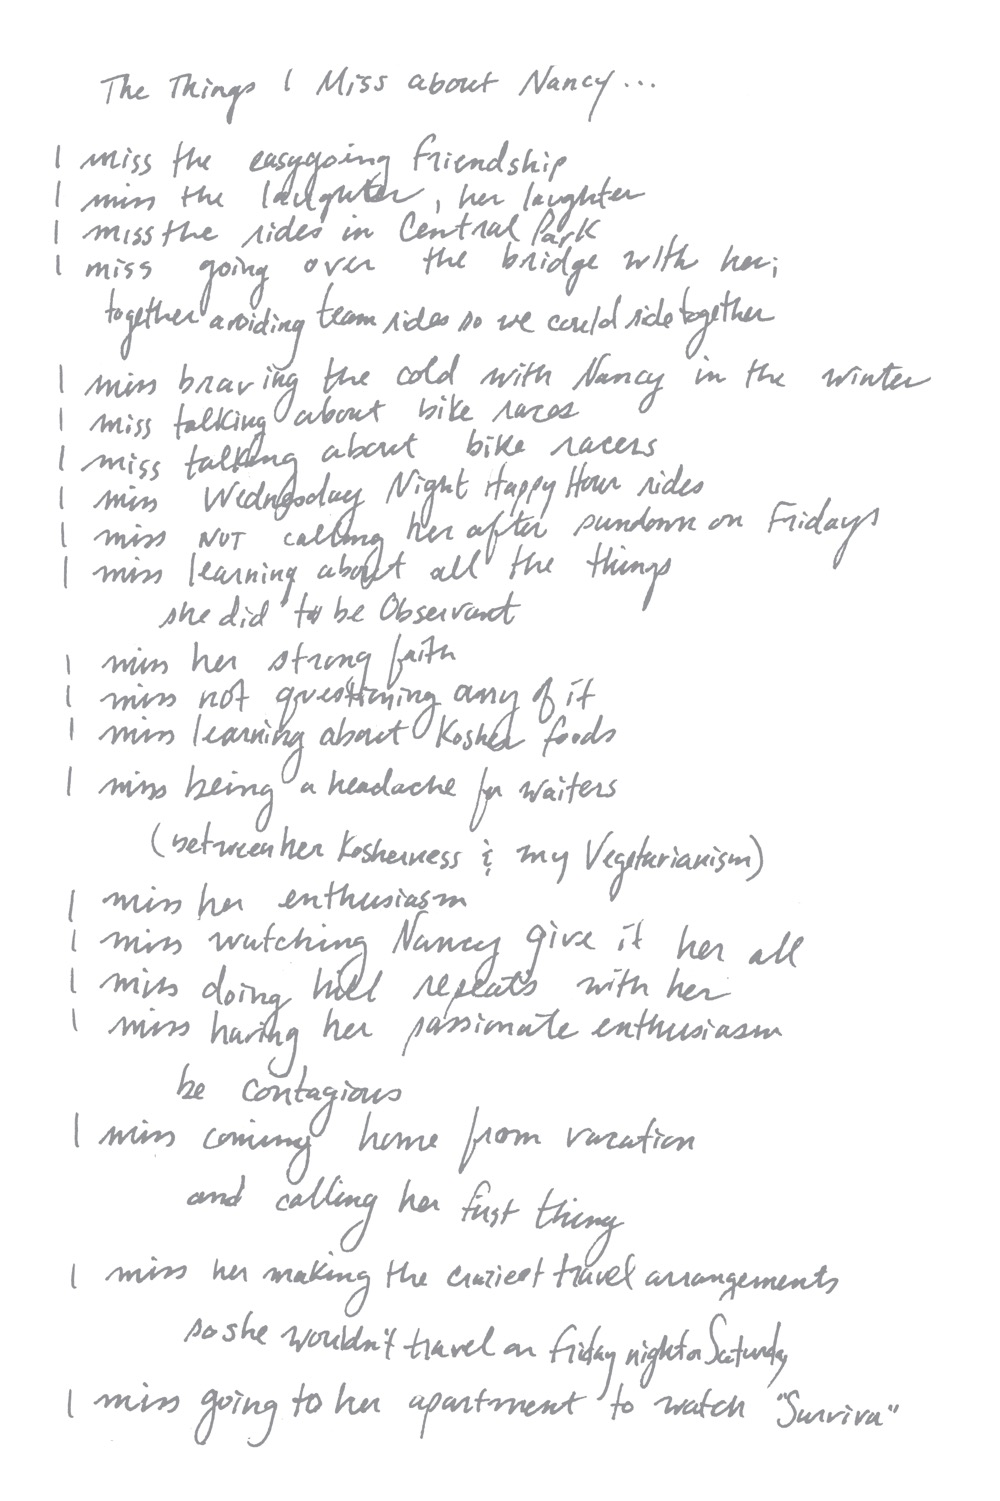 The Things I Miss about Nancy...
I miss the easygoing friendship
I miss the laughter, her laughter
I miss the rides in Central Park
I miss going over the bridge with her;
together avoiding team rides so we could ride together
I miss braving the cold with Nancy in the winter
I miss talking about bike races
I miss talking about bike racers
I miss Wednesday Night Happy Hour rides
I miss NOT calling her after sundown on Fridays
I miss learning about all the things
she did to be Observant
I miss her strong faith
I miss not questioning any of it
I miss learning about Kosher foods
I miss being a headache for waiters
(between her Kosherness & my Vegetarianism)
I miss her enthusiasm
I miss watching Nancy give it her all
I miss doing hill repeats with her
I miss having her passionate enthusiasm
be contagious
I miss coming home from vacation
and calling her first thing
I miss her making the craziest travel arrangements
so she wouldn't travel on Friday night or Saturday
I miss going to her apartment to watch "Survivor"